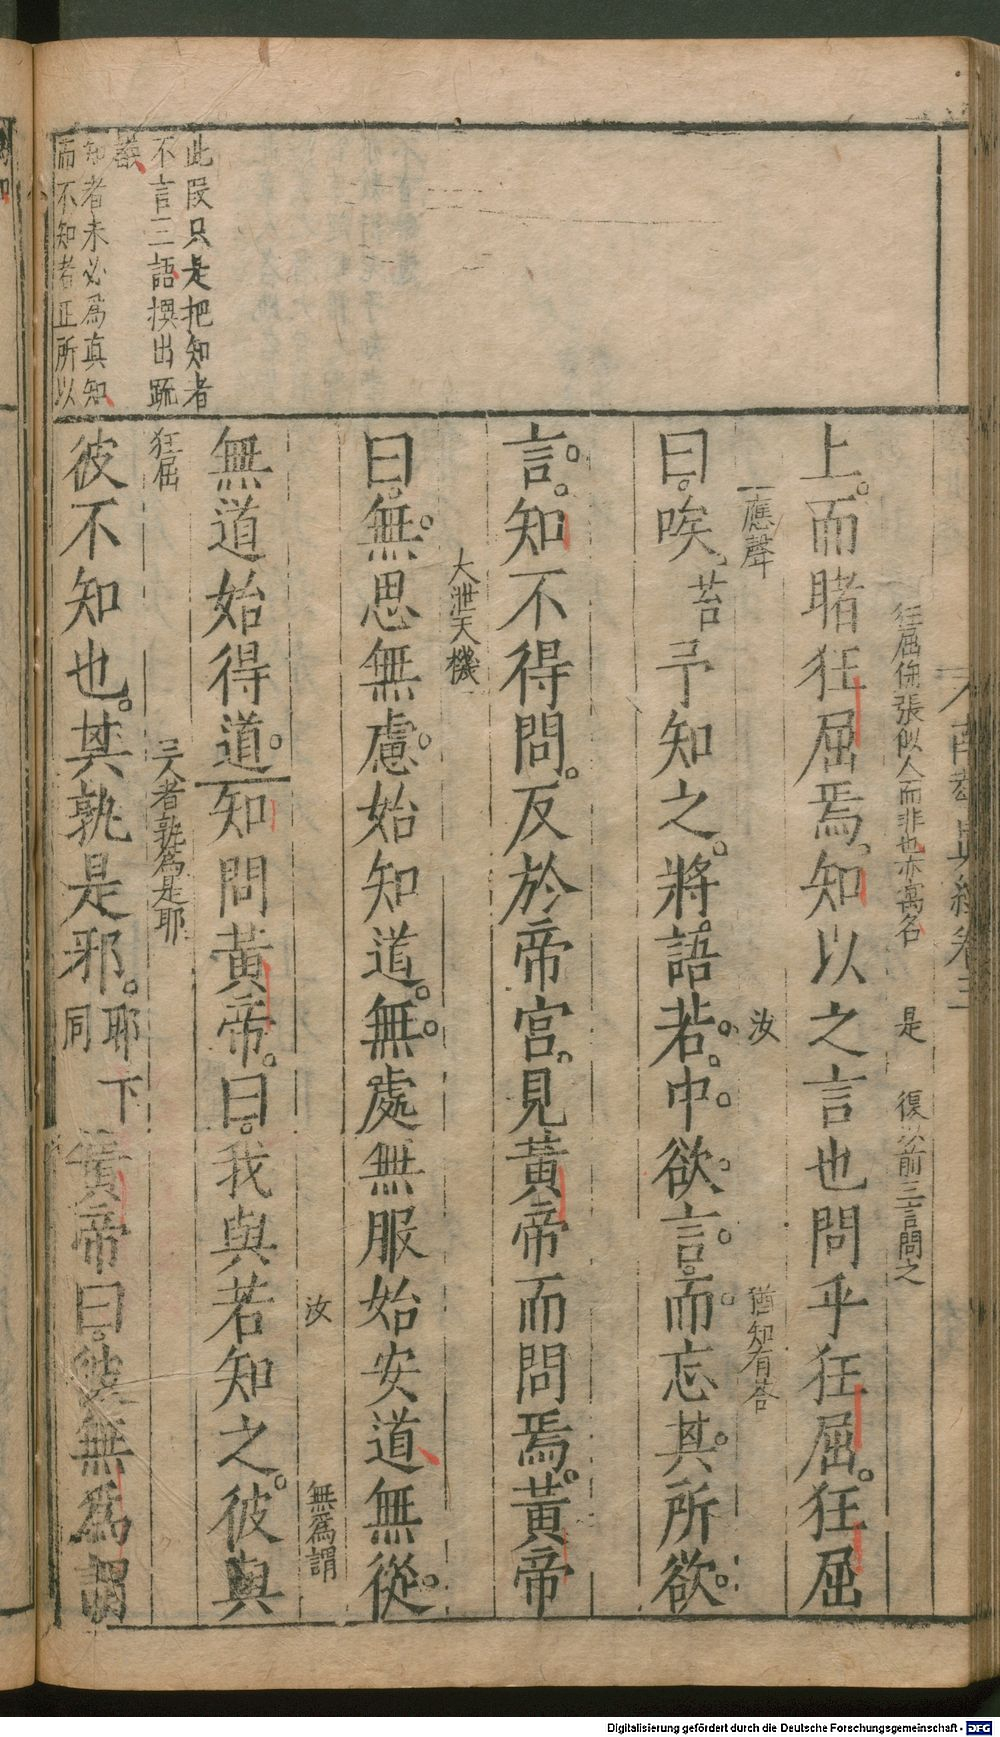 南華真經卷三
狂屈侏張似人而非也亦寓名　是　復以前三言問之
上而睹狂屈焉知以之言也問乎狂屈狂屈
應聲　汝　猶知有答
曰唉荅予知之將語若中欲言而忘其所欲
言知不得問反於帝宮見黃帝而問焉黃帝
大泄天機
曰無思無慮始知道無處無服始安道無從
汝　無為謂
無道始得道知問黃帝曰我與若知之彼與
狂屈　三人者孰為是耶
彼不知也其孰是邪耶下同黃帝曰彼無為謂
此段只是把知者
不言三語撰出疏
議
知者未必為真知
而不知者正所以
Digitalisierung gefördert durch die Deutsche Forschungsgemeinschaft - DFG